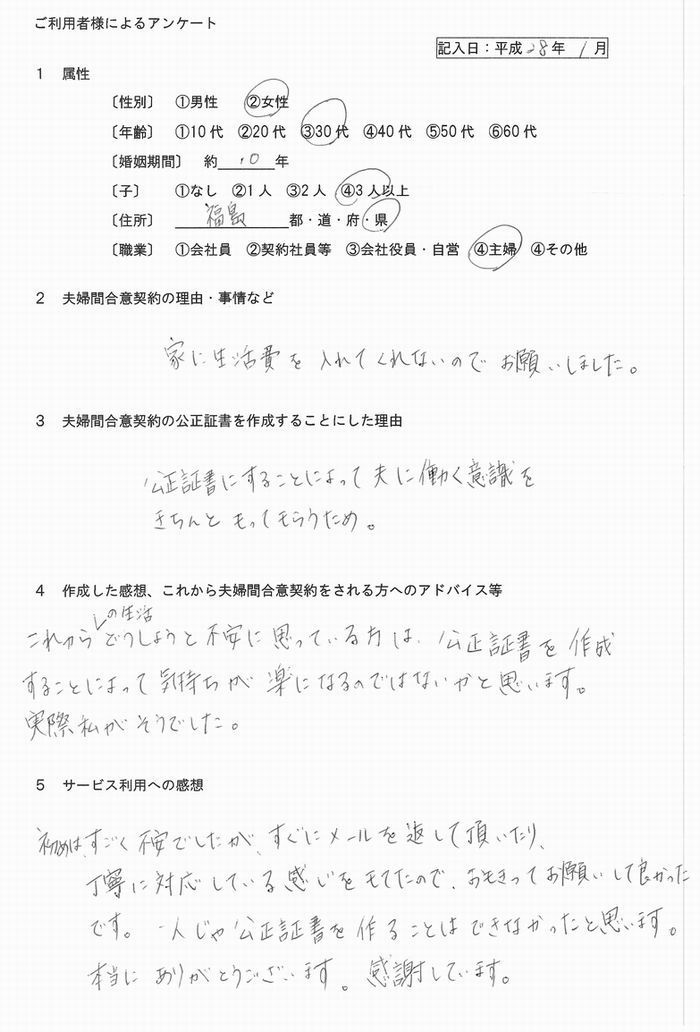 ご利用者様によるアンケート
記入日：平成28年 1月
1 属性
〔性別〕 ①男性 ②女性
〔年齢〕 ①10代 ②20代 ③30代 ④40代 ⑤50代 ⑥60代
〔婚姻期間〕 約10年
〔子〕 ①なし ②1人 ③2人 ④3人以上
〔住所〕 福島 都・道・府・県
〔職業〕 ①会社員 ②契約社員等 ③会社役員・自営 ④主婦 ④その他
2 夫婦間合意契約の理由・事情など
家に生活費を入れてくれないのでお願いしました。
3 夫婦間合意契約の公正証書を作成することにした理由
公正証書にすることによって夫に働く意識を
きちんともってもらうため。
4 作成した感想、これから夫婦間合意契約をされる方へのアドバイス等
の生活
これからどうしようと不安に思っている方は、公正証書を作成
することによって気持ちが楽になるのではないかと思います。
実際私がそうでした。
5 サービス利用への感想
初めは、すごく不安でしたが、すぐにメールを返して頂いたり、
丁寧に対応している感じをもてたので、おもきってお願いして良かった
です。一人じゃ公正証書を作ることはできなかったと思います。
本当にありがとうございます。感謝しています。